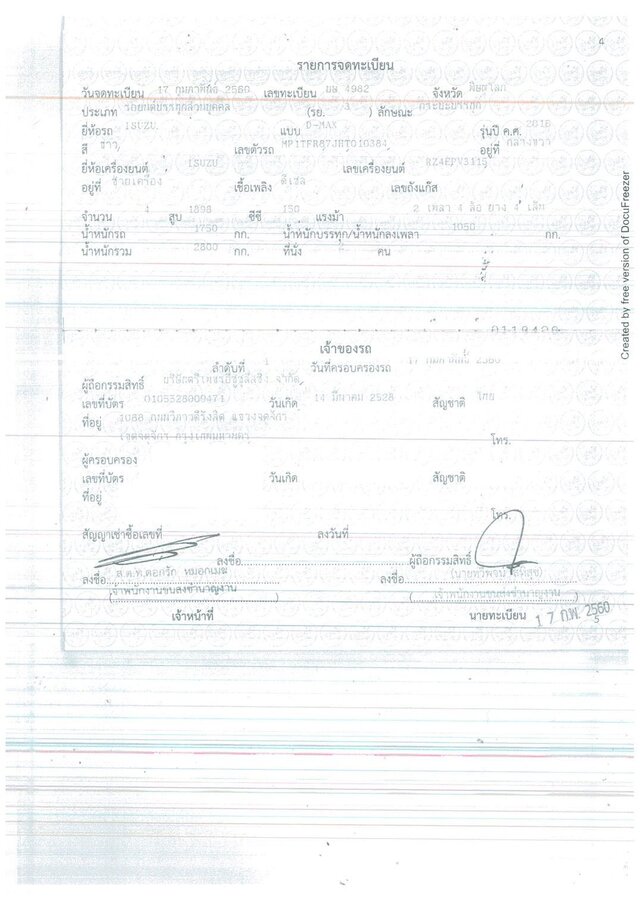 4
รายการจดทะเบียน
วันจดทะเบียน 17 กุมภาพันธ์ 2560 เลขทะเบียน 4982 จังหวัด พิษณุโลก
ประเภท รถยนต์บรรทุกส่วนบุคคล (รย. 3 ) ลักษณะ กระบะบรรทุก
ยี่ห้อรถ ISUZU แบบ D-MAX รุ่นปี ค.ศ. 2016
สี ขาว เลขตัวรถ MP1TFR87JHT010384 อยู่ที่ กลางขวา
ยี่ห้อเครื่องยนต์ ISUZU เลขเครื่องยนต์ RZ4EPV3115
อยู่ที่ ซ้ายเครื่อง เชื้อเพลิง ดีเซล เลขถังแก๊ส
จำนวน 4 สูบ 1898 ซีซี 150 แรงม้า 2 เพลา 4 ล้อ ยาง 4 เส้น
น้ำหนักรถ 1750 กก. น้ำหนักบรรทุก/น้ำหนักลงเพลา 1050 กก.
น้ำหนักรวม 2800 กก. ที่นั่ง 2 คน
เจ้าของรถ
ลำดับที่ 1 วันที่ครอบครองรถ 17 กุมภาพันธ์ 2560
ผู้ถือกรรมสิทธิ์ บริษัทตรีเพชรอีซูซุลิสซิ่ง จำกัด
เลขที่บัตร 0105528009471 วันเกิด 14 มีนาคม 2528 สัญชาติ ไทย
ที่อยู่ 1088 ถนนวิภาวดีรังสิต แขวงจตุจักร
เขตจตุจักร กรุงเทพมหานคร โทร.
ผู้ครอบครอง
เลขที่บัตร วันเกิด สัญชาติ
ที่อยู่
โทร.
สัญญาเช่าซื้อเลขที่ ลงวันที่
ลงชื่อ ผู้ถือกรรมสิทธิ์
ลงชื่อ ส.ต.ท.ดอกรัก หมอกเมฆ ลงชื่อ
(เจ้าพนักงานขนส่งชำนาญงาน) (เจ้าพนักงานขนส่งชำนาญงาน)
เจ้าหน้าที่ นายทะเบียน 17 ก.พ. 2560
5
Created by free version of DocuFreezer